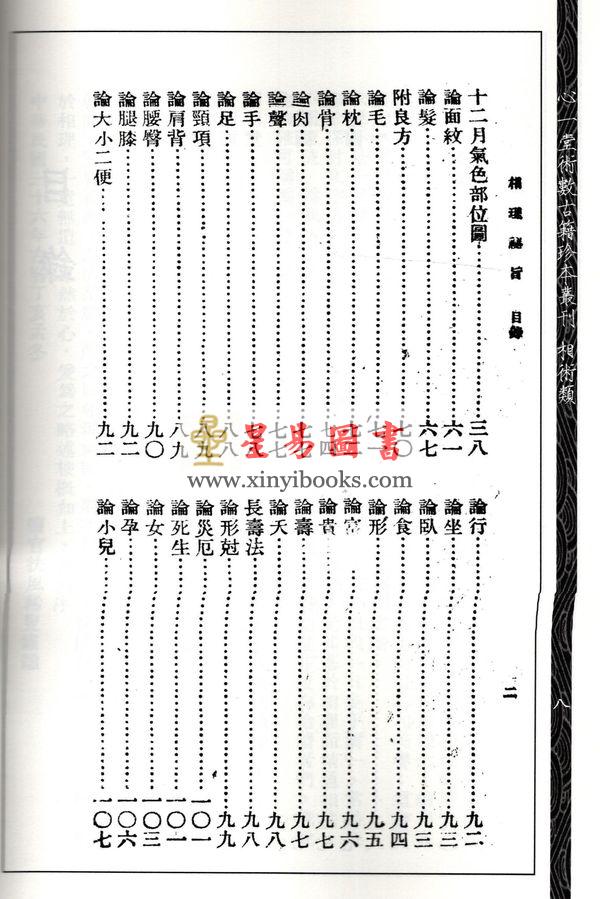 心一堂術數古籍珍本叢刊 相術類
八
相理秘旨 目錄
二
十二月氣色部位圖……三八
論面紋……六一
論髮……六七
附良方……七〇
論毛……
論枕……
論骨……
論肉……
論聲……
論手……
論足……
論頸項……
論肩背……八九
論腰臀……九〇
論腿膝……九二
論大小二便……九二
論行……九二
論坐……九三
論臥……九三
論食……九四
論形……九五
論富……九六
論貴……九七
論壽……九七
論夭……九八
長壽法……九八
論形尅……九九
論災厄……一〇一
論死生……一〇一
論女……一〇三
論孕……一〇六
論小兒……一〇七
星易圖書
www.xinyibooks.com